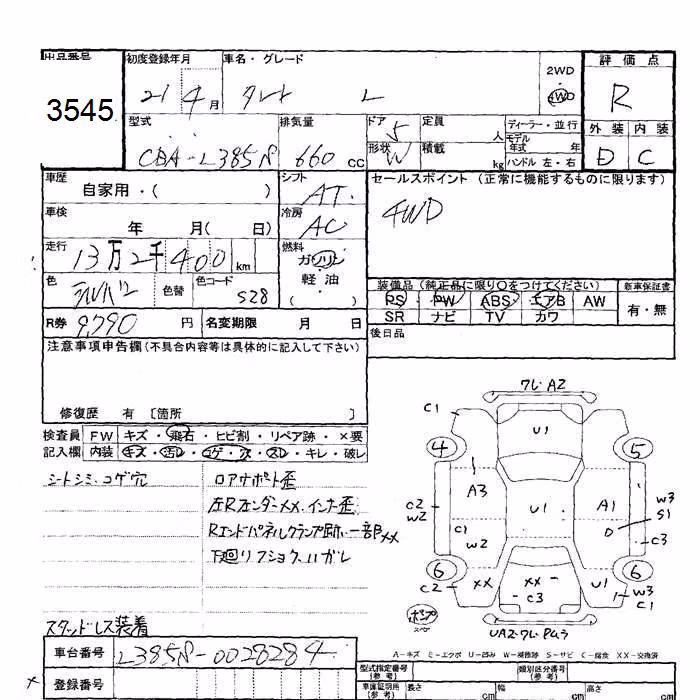 出品番号 初度登録年月 車名・グレード 評価点
3545 21 4月 タント L 2WD 4WD R
型式 排気量 ドア 5 定員 人 ディーラー・並行 外装 内装
CBA-L385S 660 cc 形状 W 積載 kg モデル年式 年 ハンドル 左・右 D C
車歴 自家用・( ) シフト AT セールスポイント (正常に機能するものに限ります)
車検 年 月( 日) 冷房 AC 4WD
走行 13万2千400km 燃料 ガソリン
軽油
( )
色 シルバー 色替 色コード S28
装備品 (純正品に限り○をつけてください) 新車保証書
PS PW ABS エアB AW 有・無
SR ナビ TV カワ
R券 9,790 円 名変期限 月 日 後日品
注意事項申告欄(不具合内容等は具体的に記入して下さい)
修復歴 有 [箇所 ]
検査員 FW キズ・飛石・ヒビ割・リペア跡・×要
記入欄 内装 キズ・汚レ・コゲ・穴・スレ・キレ・破レ
シートシミ・コゲ穴 ロアサポート歪
左Rフェンダー××・インナー歪
Rエンドパネルクランプ跡・一部××
下廻リフショク・ハガレ
スタッドレス装着
フレA2
C1 U1
4 5
A3 A1 W3
C2 U1 S1
W2 C1 W2 D C3
6 6
C2 XX XX C3 U1 W3
C1
UA2・フレ
A-キズ E-エクボ U-凹み W-補修跡 S-サビ C-腐食 XX-交換済
車台番号 L385S-0028284 型式指定番号(参考) 類別区分番号(参考)
登録番号 車庫証明用(参考) 長さ cm 幅 cm 高さ cm